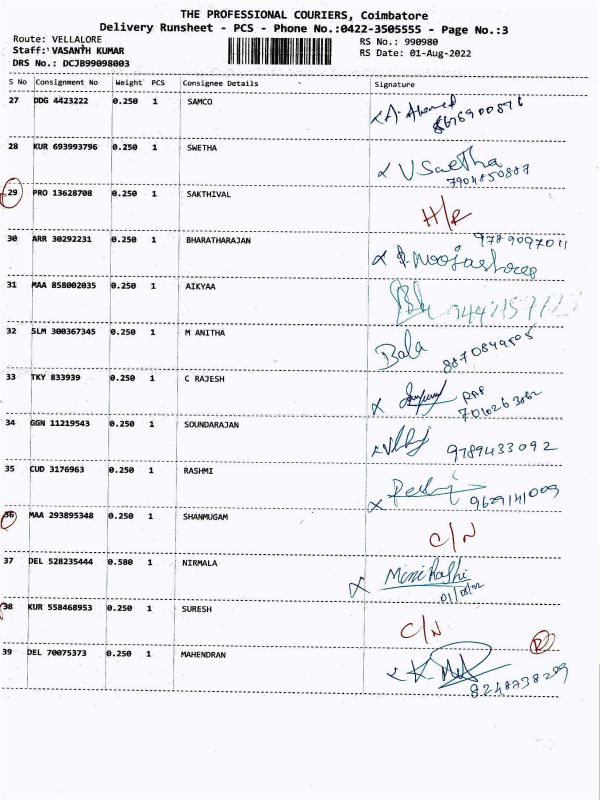 THE PROFESSIONAL COURIERS, Coimbatore
Delivery Runsheet - PCS - Phone No.:0422-3505555 - Page No.:3
Route: VELLALORE
RS No.: 990980
Staff: VASANTH KUMAR
RS Date: 01-Aug-2022
DRS No.: DCJB99098003
S No Consignment No Weight PCS Consignee Details Signature
27 DDG 4423222 0.250 1 SAMCO A. Ahamed
28 KUR 693993796 0.250 1 SWETHA V. Swetha
7904850887
29 PRO 13628708 0.250 1 SAKTHIVAL H/R
30 ARR 30292231 0.250 1 BHARATHARAJAN 9789097011
31 MAA 858002035 0.250 1 AIKYAA
32 SLM 300367345 0.250 1 M ANITHA Bala
33 TKY 833939 0.250 1 C RAJESH
34 GGN 11219543 0.250 1 SOUNDARAJAN 9789433092
35 CUD 3176963 0.250 1 RASHMI
9629141009
36 MAA 293895348 0.250 1 SHANMUGAM C/N
37 DEL 528235444 0.580 1 NIRMALA
38 KUR 558468953 0.250 1 SURESH C/N
39 DEL 70075373 0.250 1 MAHENDRAN
8248738289